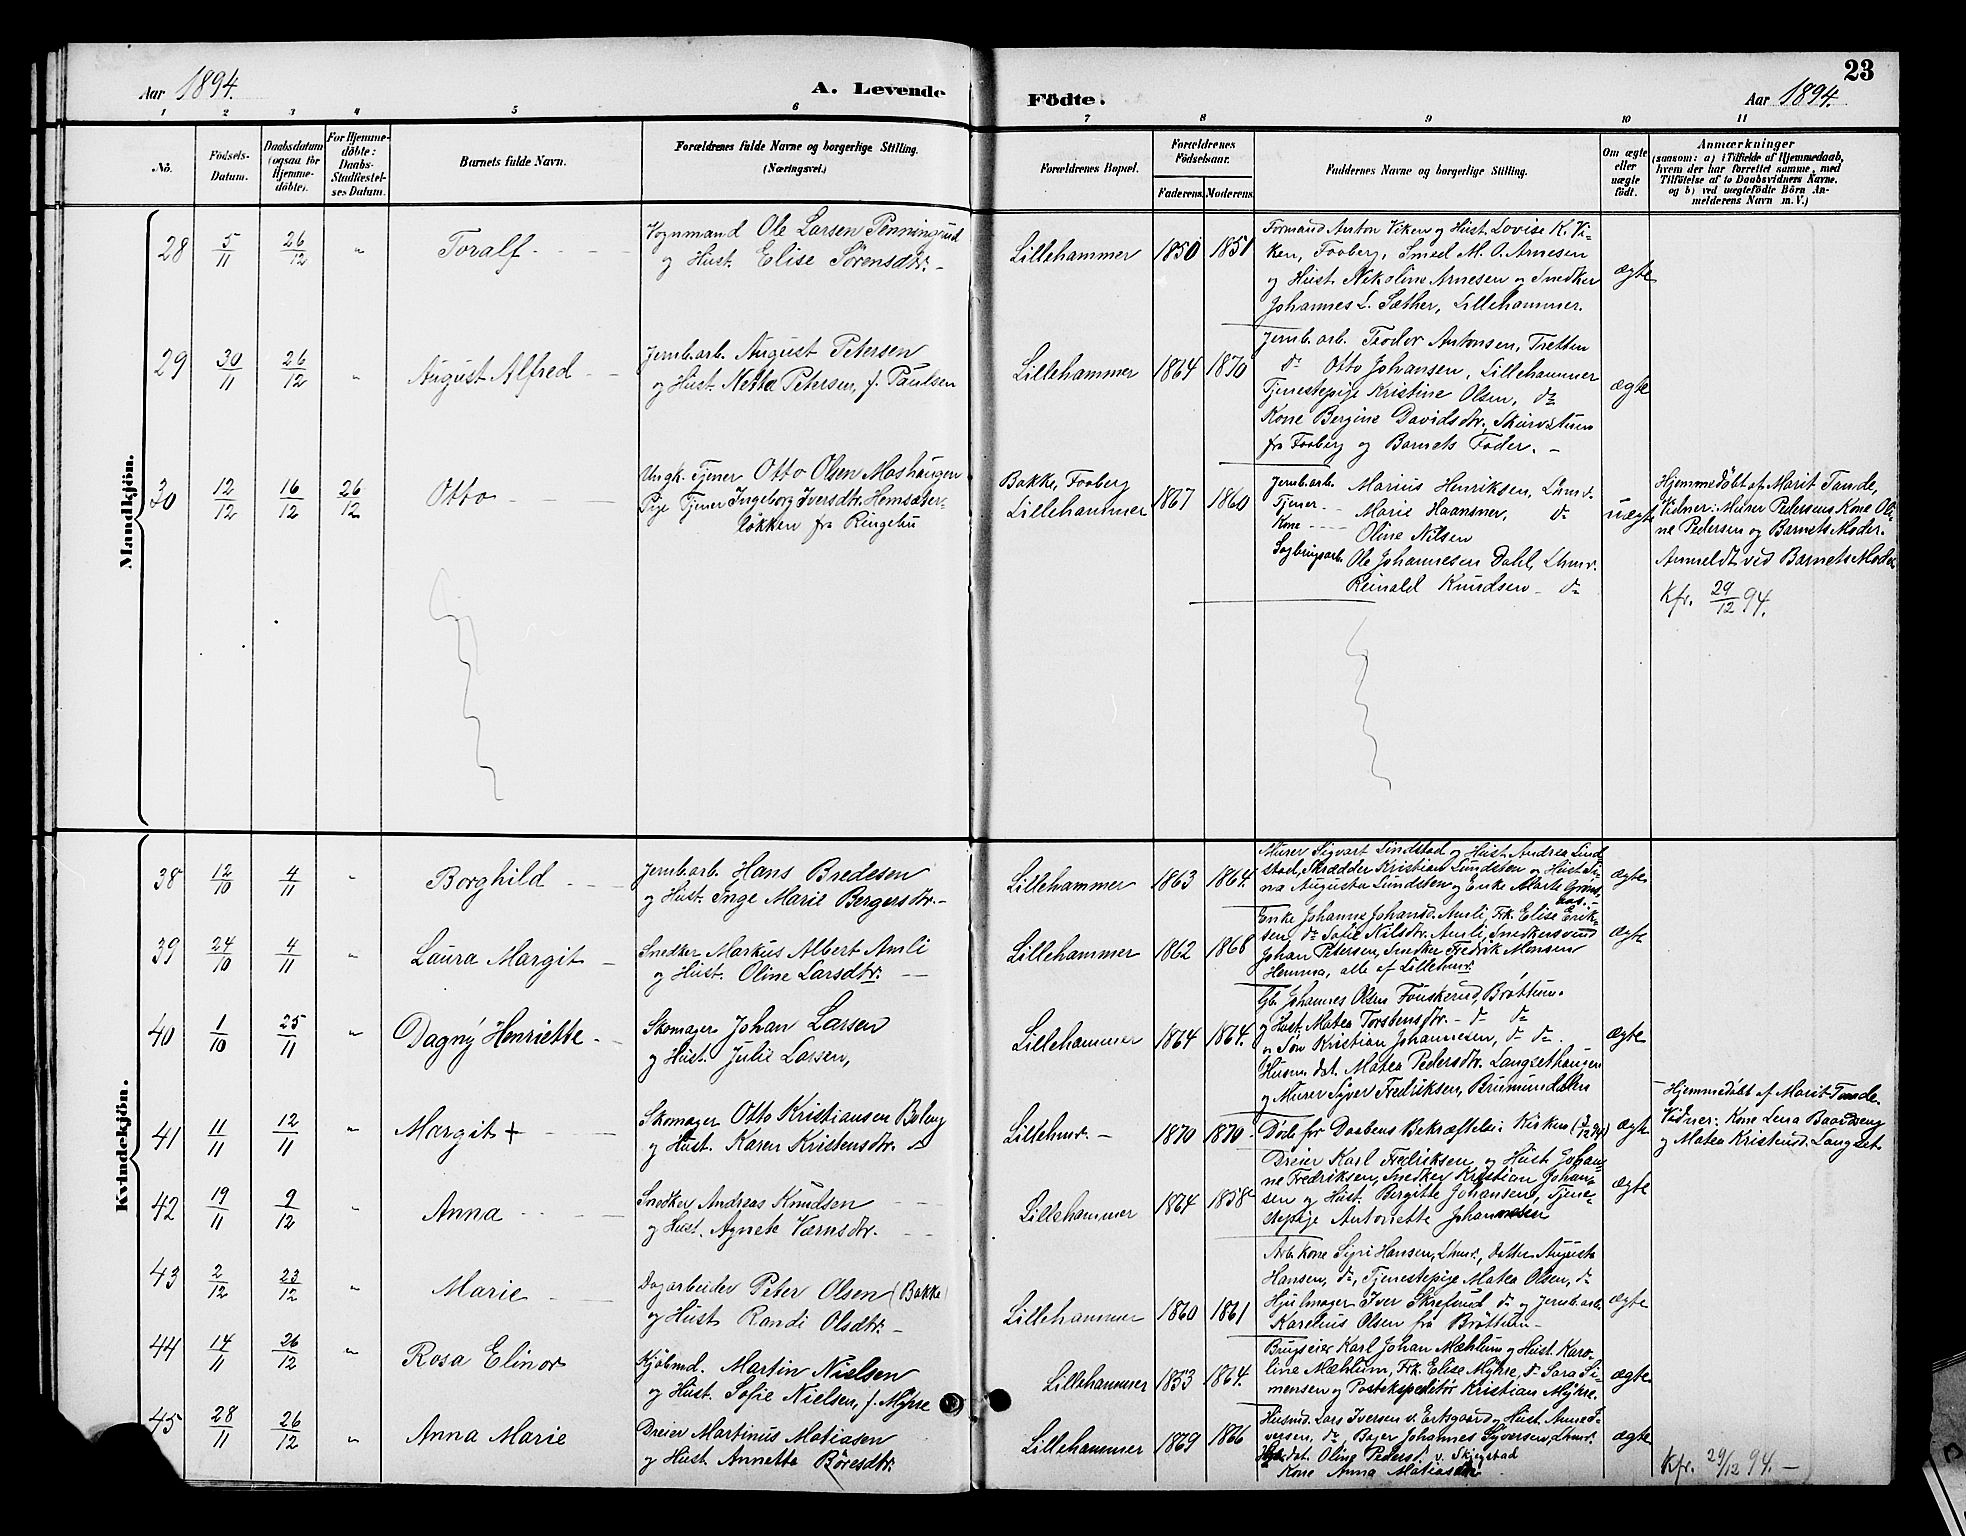 Aar 1894. A. Levende Födte. Aar 1894. 23
1 2 3 4 5 6 7 8 9 10 11
No.
Födsels-
Datum.
Daabsdatum
(ogsaa for
Hjemme-
döbte).
For Hjemme-
döbte:
Daabs-
Stadfæstel-
ses Datum.
Barnets fulde Navn.
Forældrenes fulde Navne og borgerlige Stilling.
(Næringsvei.)
Forældrenes Bopæl.
Forældrenes
Födselsaar.
Faderens. Moderens.
Faddernes Navne og borgerlige Stilling.
Om ægte
eller
uægte
födt.
Anmærkninger
(saasom: a) i Tilfælde af Hjemmedaab,
hvem der har forrettet samme, med
Tilföielse af to Daabsvidners Navne,
og b) ved uægtefödte Börn An-
melderens Navn m. V.)
Mandkjön.
28 5/11 26/12 " Toralf
Vognmand Ole Larsen Penningrud
og Hust. Elise Sørensdtr.
Lillehammer 1850 1851
Formand Anton Viken og Hust. Lovise K. Vi-
ken, Faaberg, Smed M. O. Arnesen
og Hust. Nikoline Arnesen og Snedker
Johannes L. Sæther, Lillehammer.
ægte
29 30/11 26/12 " August Alfred
Jernb.arb. August Petersen
og Hust. Netta Petersen, f. Paulsen
Lillehammer 1864 1870
Jernb. arb. Teodor Antonsen, Tretten
do Otto Johansen, Lillehammer
Tjenestepige Kristine Olsen, do
Kone Bergine Davidsdtr. Skurvstuen
fra Faaberg og Barnets Fader.
ægte
30 12/12 16/12 26/12 Otto
Ungk. Tjener Otto Olsen Moshaugen
Pige Tjener Ingeborg Iversdtr. Hemsæter-
løkken fra Ringebu
Bakke, Faaberg
Lillehammer 1867 1860
Jernb.arb. Marius Henriksen, Lhmr.
Tjener Marie Haansner, do
Kone Oline Nilsen
Sagbrugsarb. Ole Johannesen Dahl, Lhmr.
Reinald Knudsen do
uægte
Hjemmedøbt af Marit Tande,
Vidner: Murer Pedersens Kone Oli-
ne Pedersen og Barnets Moder.
Anmeldt ved Barnets Moder
Kfr. 29/12 94.
Kvindekjön.
38 12/10 4/11 " Borghild
Jernb.arb. Hans Bredesen
og Hust. Inge Marie Bergersdtr.
Lillehammer 1863 1864.
Murer Sigvart Lindstad og Hust. Andrea Lind-
stad, Skrædder Kristian Lundsten og Hust.
Augusta Lundsten og Enke Marte
ægte
39 24/10 4/11 " Laura Margit
Snedker Markus Albert Amli
og Hust. Oline Larsdtr.
Lillehammer 1862 1868
Enke Johanne Johansd. Amli, Frk. Elise Erik-
sen, do Sofie Nilsdtr. Amli, Snedkersvend
Johan Petersen, Snedker Fredrik Monsen
Hemma, alle af Lillehmr.
ægte
40 1/10 25/11 " Dagny Henriette
Skomager Johan Larsen
og Hust. Julie Larsen,
Lillehammer 1864 1864.
Gb. Johannes Olsen Fonskerud, Brøttum.
og Hust. Matea Torstensdtr. do do
og Søn Kristian Johannesen, do do.
Husm. dat. Matea Pedersdtr. Langsethaugen
og Murer Syver Fredriksen, Brumunddalen
ægte
41 11/11 12/11 " Margit +
Skomager Otto Kristiansen
og Hust. Karen Kristensdtr.
Lillehmr. 1870 1870
Døde før Daabens Bekræftelse i Kirken
ægte
Hjemmedøbt af Marit Tande
Vidner: Kone Lena Baadseng
og Matea Kristensd. Langset.
42 19/11 9/12 " Anna
Snedker Andreas Knudsen
og Hust. Agnete Værnsdtr.
Lillehammer 1864 1858
Dreier Karl Fredriksen og Hust. Johan-
ne Fredriksen, Snedker Kristian Johan-
sen og Hust. Bergitte Johansen, Tjene-
stepige Antonette Johannesen
ægte
43 2/12 23/12 " Marie
Dagarbeider Peter Olsen (Bakke)
og Hust Randi Olsdtr.
Lillehammer 1860 1861
Arb. Kone Siri Hansen, Lhmr., Datter Augusta
Hansen, do, Tjenestepige Matea Olsen, do
Hjulmager Iver Skrefsrud do og Jernb.arb.
Karelius Olsen fra Brøttum
ægte
44 14/11 26/12 " Rosa Elinor
Kjøbmd. Martin Nielsen
og Hust. Sofie Nielsen, f. Myhre
Lillehammer 1853 1864.
Brugseier Karl Johan Mæhlum og Hust. Karo-
line Mæhlum, Frk. Elise Myhre, do Sara Si-
mensen og Postekspeditør Kristian Myhre.
ægte
45 28/11 26/12 " Anna Marie
Dreier Martinus Matiasen
og Hust. Annette Børesdtr.
Lillehammer 1869 1866
Husmd. Lars Iversen v. Eriksgaard og Hust. Anne I-
versen, do, Bager Johannes Syversen, Lhmr.
dat. Oline Pedersd. v. Skjegstad
Kone Anna Matiasen
ægte
Kfr. 29/12 94.